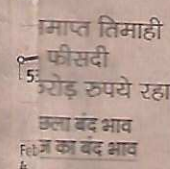 माप्त तिमाही
फीसदी
53
रोड़ रुपये रहा
छला बंद भाव
Feb
ज का बंद भाव